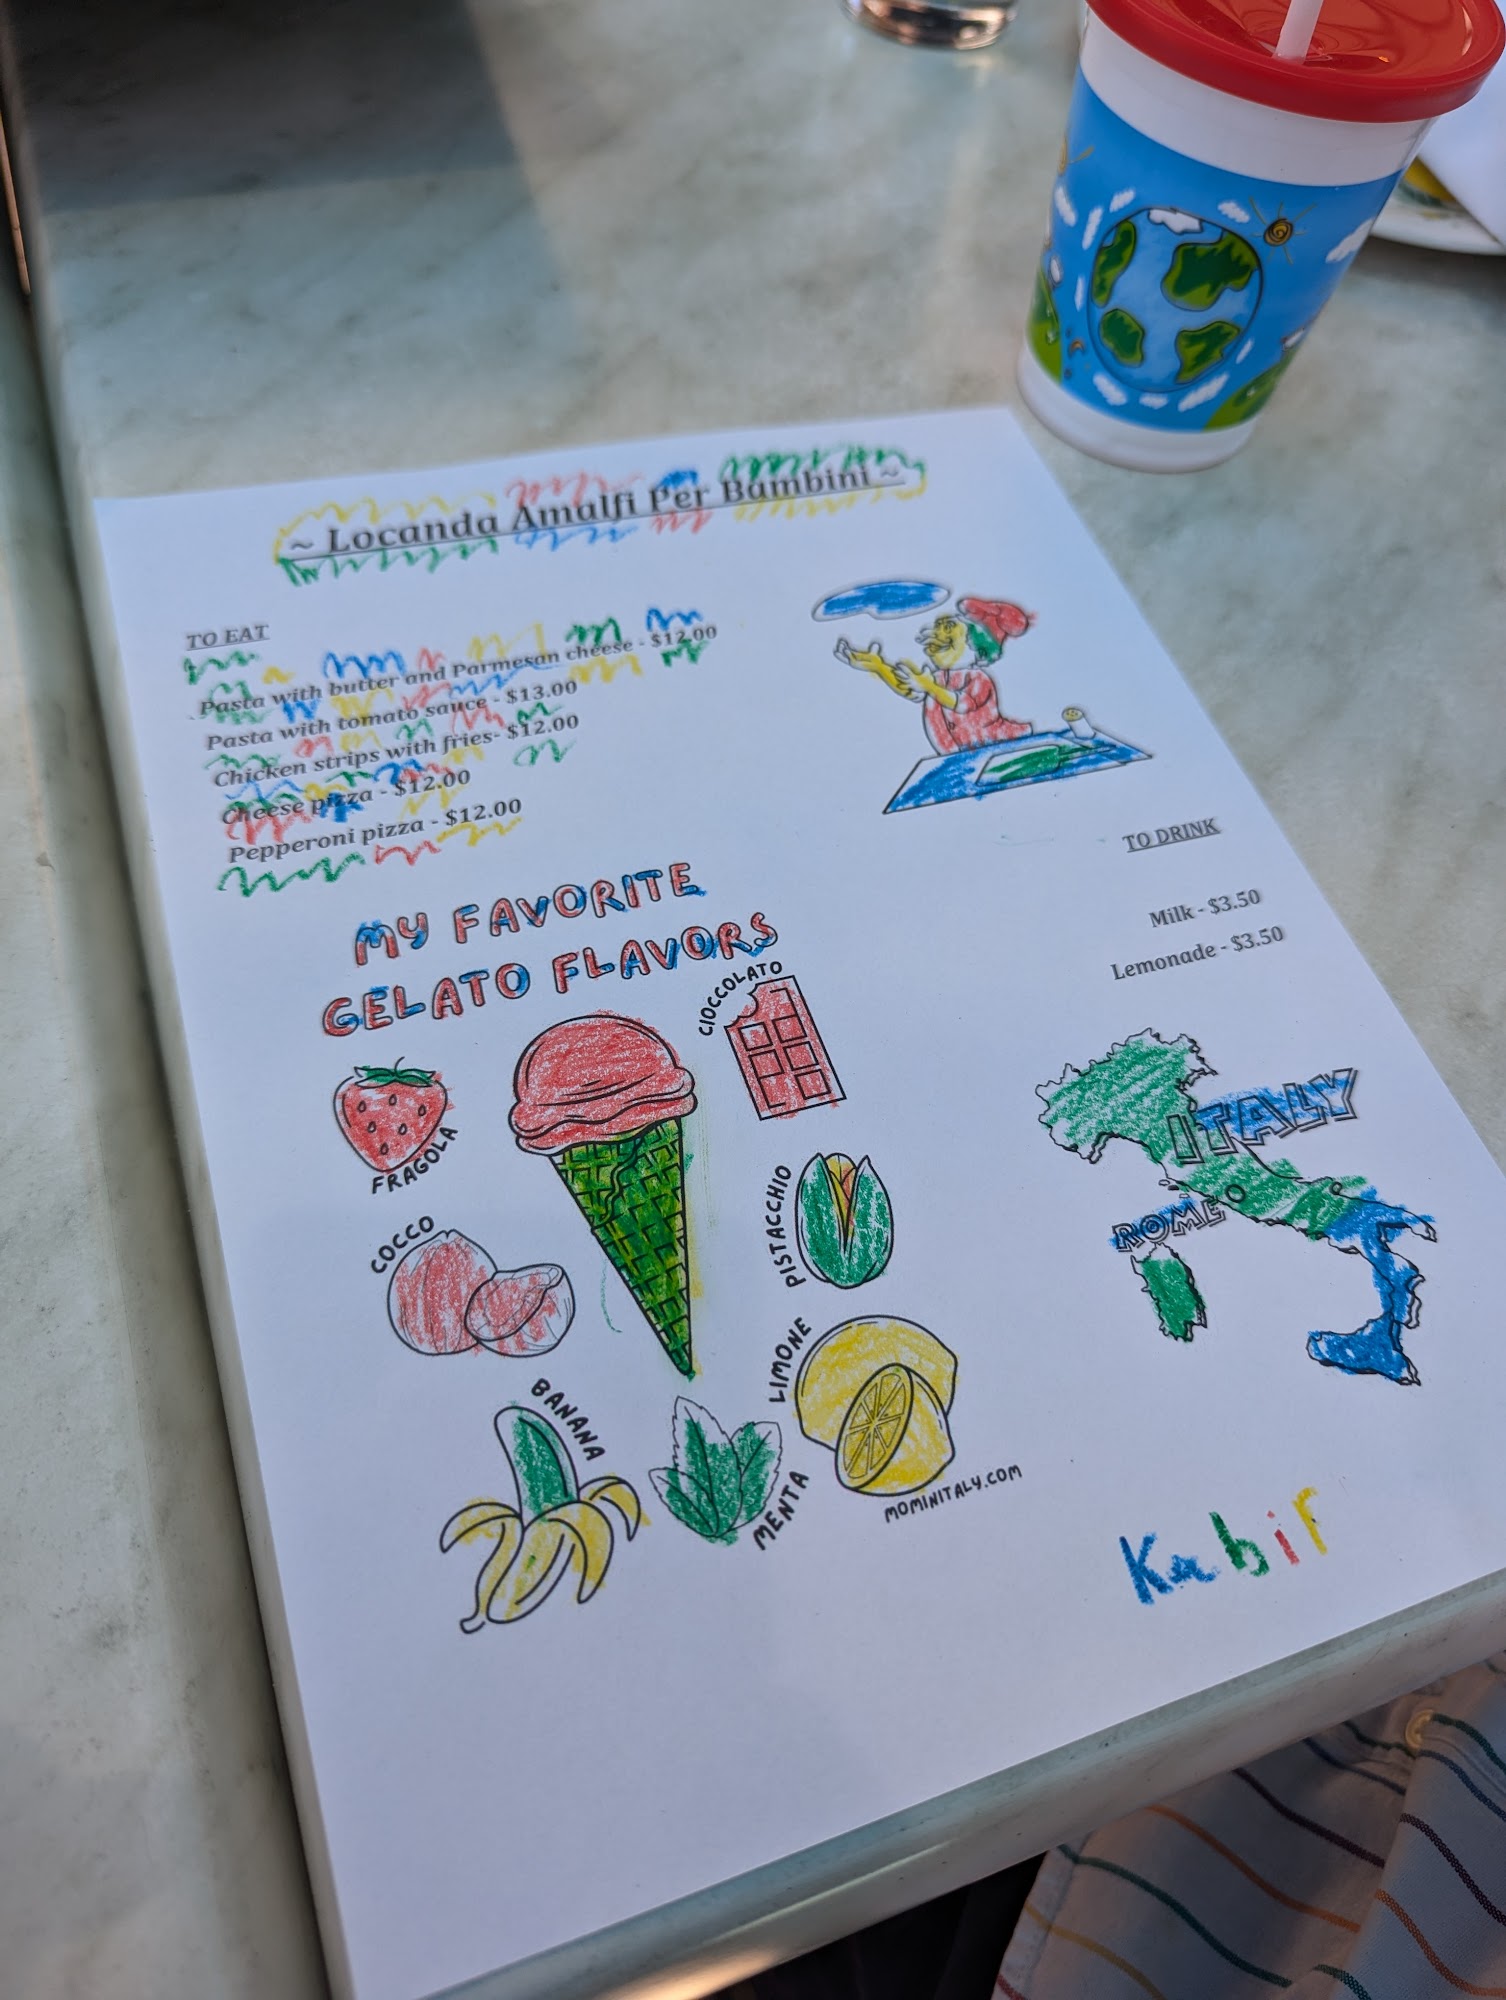 ~ Locanda Amalfi Per Bambini ~
TO EAT
Pasta with butter and Parmesan cheese - $12.00
Pasta with tomato sauce - $13.00
Chicken strips with fries- $12.00
Cheese pizza - $12.00
Pepperoni pizza - $12.00
TO DRINK
Milk - $3.50
Lemonade - $3.50
MY FAVORITE
GELATO FLAVORS
CIOCCOLATO
FRAGOLA
PISTACCHIO
COCCO
LIMONE
BANANA
MENTA
MOMINITALY.COM
ITALY
ROME
Kabir